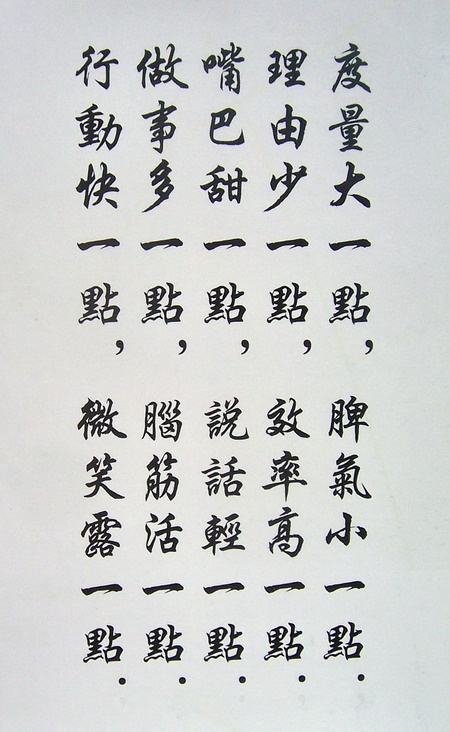 度量大一點,脾氣小一點.
理由少一點,效率高一點.
嘴巴甜一點,說話輕一點.
做事多一點,腦筋活一點.
行動快一點,微笑露一點.